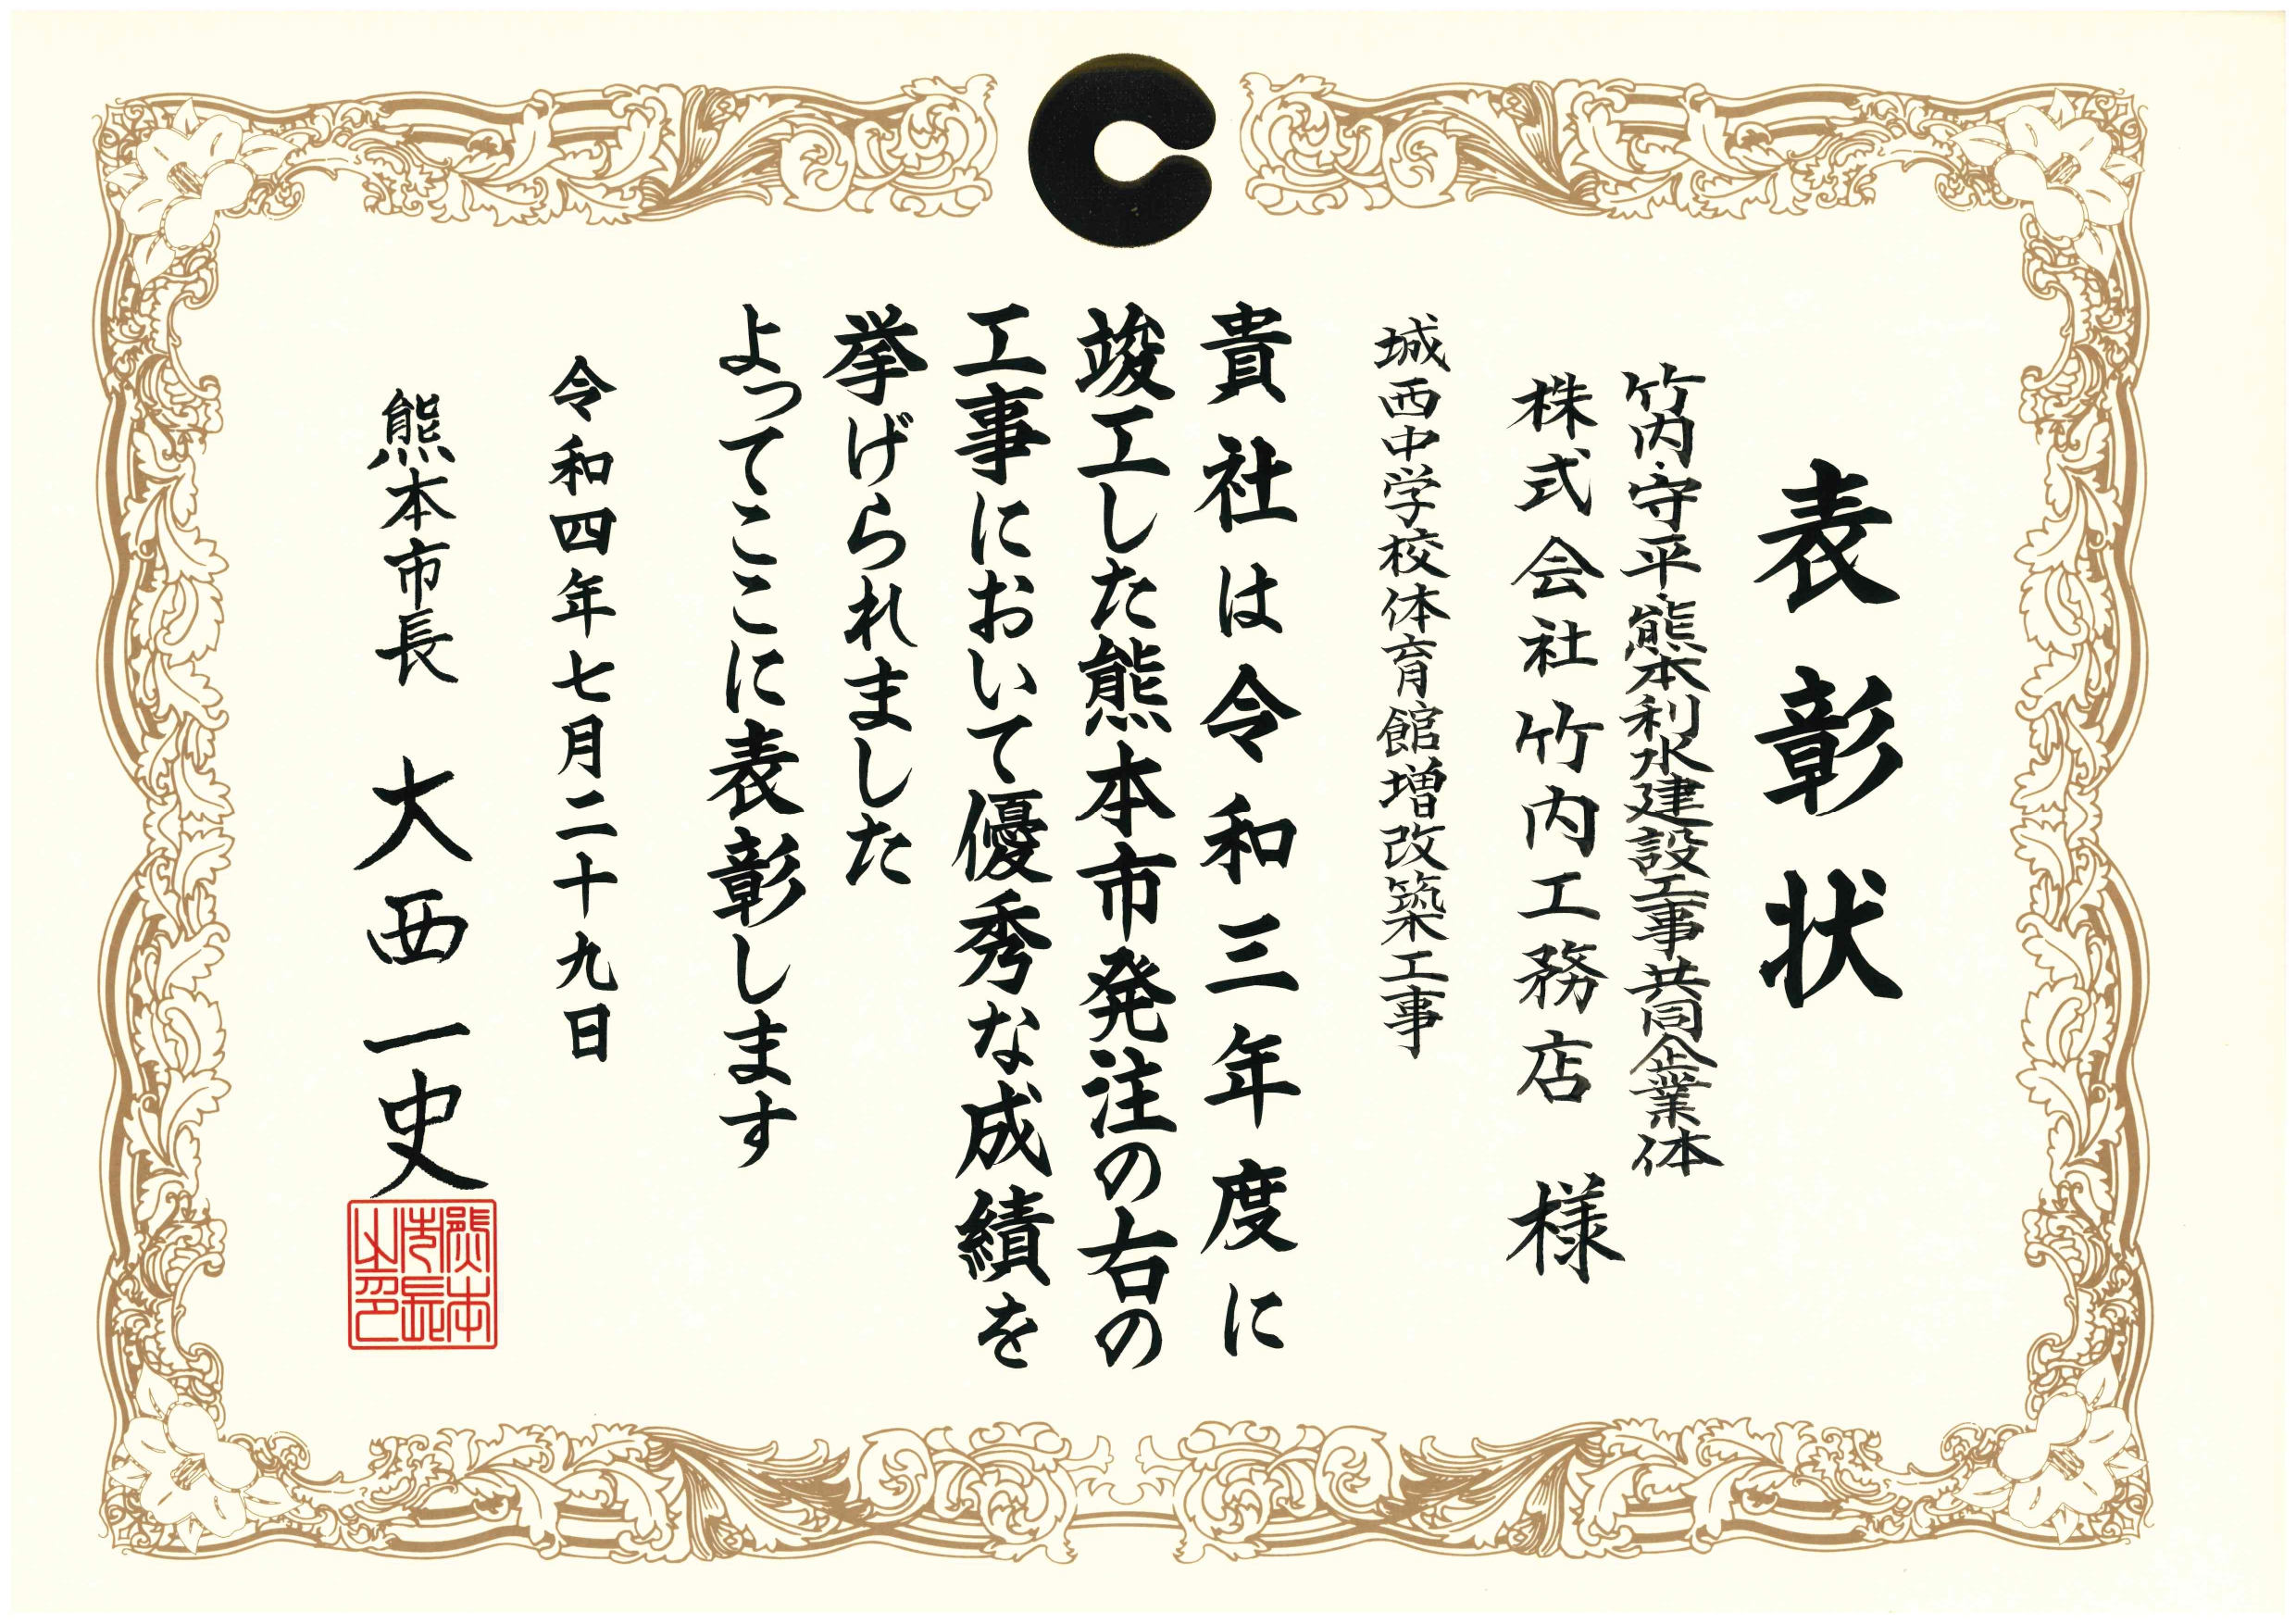 表彰状
竹内・守平・熊本利水建設工事共同企業体
株式会社竹内工務店 様
城西中学校体育館増改築工事
貴社は令和三年度に
竣工した熊本市発注の右の
工事において優秀な成績を
挙げられました
よってここに表彰します
令和四年七月二十九日
熊本市長 大西一史
熊本市長之印